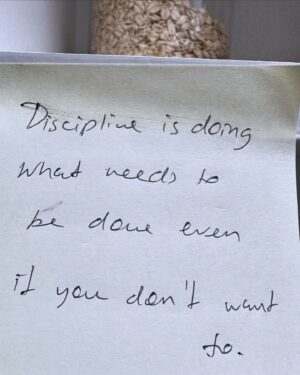 Discipline is doing
what needs to
be done even
if you don't want
to.